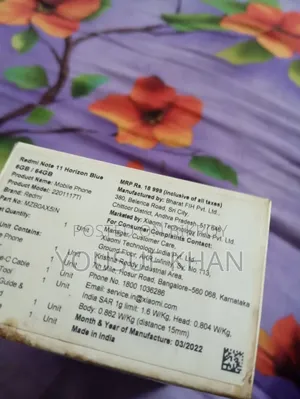 Redmi Note 11 Horizon Blue
6GB / 64GB
Product Name: Mobile Phone
Product Model: 2201117TI
Brand: Redmi
Part No.:
Unit
1 Unit
1 Unit
1 Unit
1 Unit
MRP Rs. 18 999 (inclusive of all taxes)
Manufactured by: Bharat FIH Pvt. Ltd.,
380, Belerica Road, Sri City,
Chittoor District, Andhra Pradesh - 517 646
Marketed by: Xiaomi Technology India Pvt. Ltd.
For Consumer Complaints Contact:
Manager, Customer Care,
Xiaomi Technology India Pvt. Ltd.
Ground Floor, AKR Infinity, Sy. No. 113,
Krishna Reddy Industrial Area,
7th Mile, Hosur Road, Bangalore-560 068, Karnataka
Phone No. 1800 1036286
Email: service.in@xiaomi.com
India SAR 1g limit: 1.6 W/Kg, Head: 0.804 W/Kg,
Body: 0.862 W/Kg (distance 15mm)
Month & Year of Manufacture: 03/2022
Made in India
KHAN